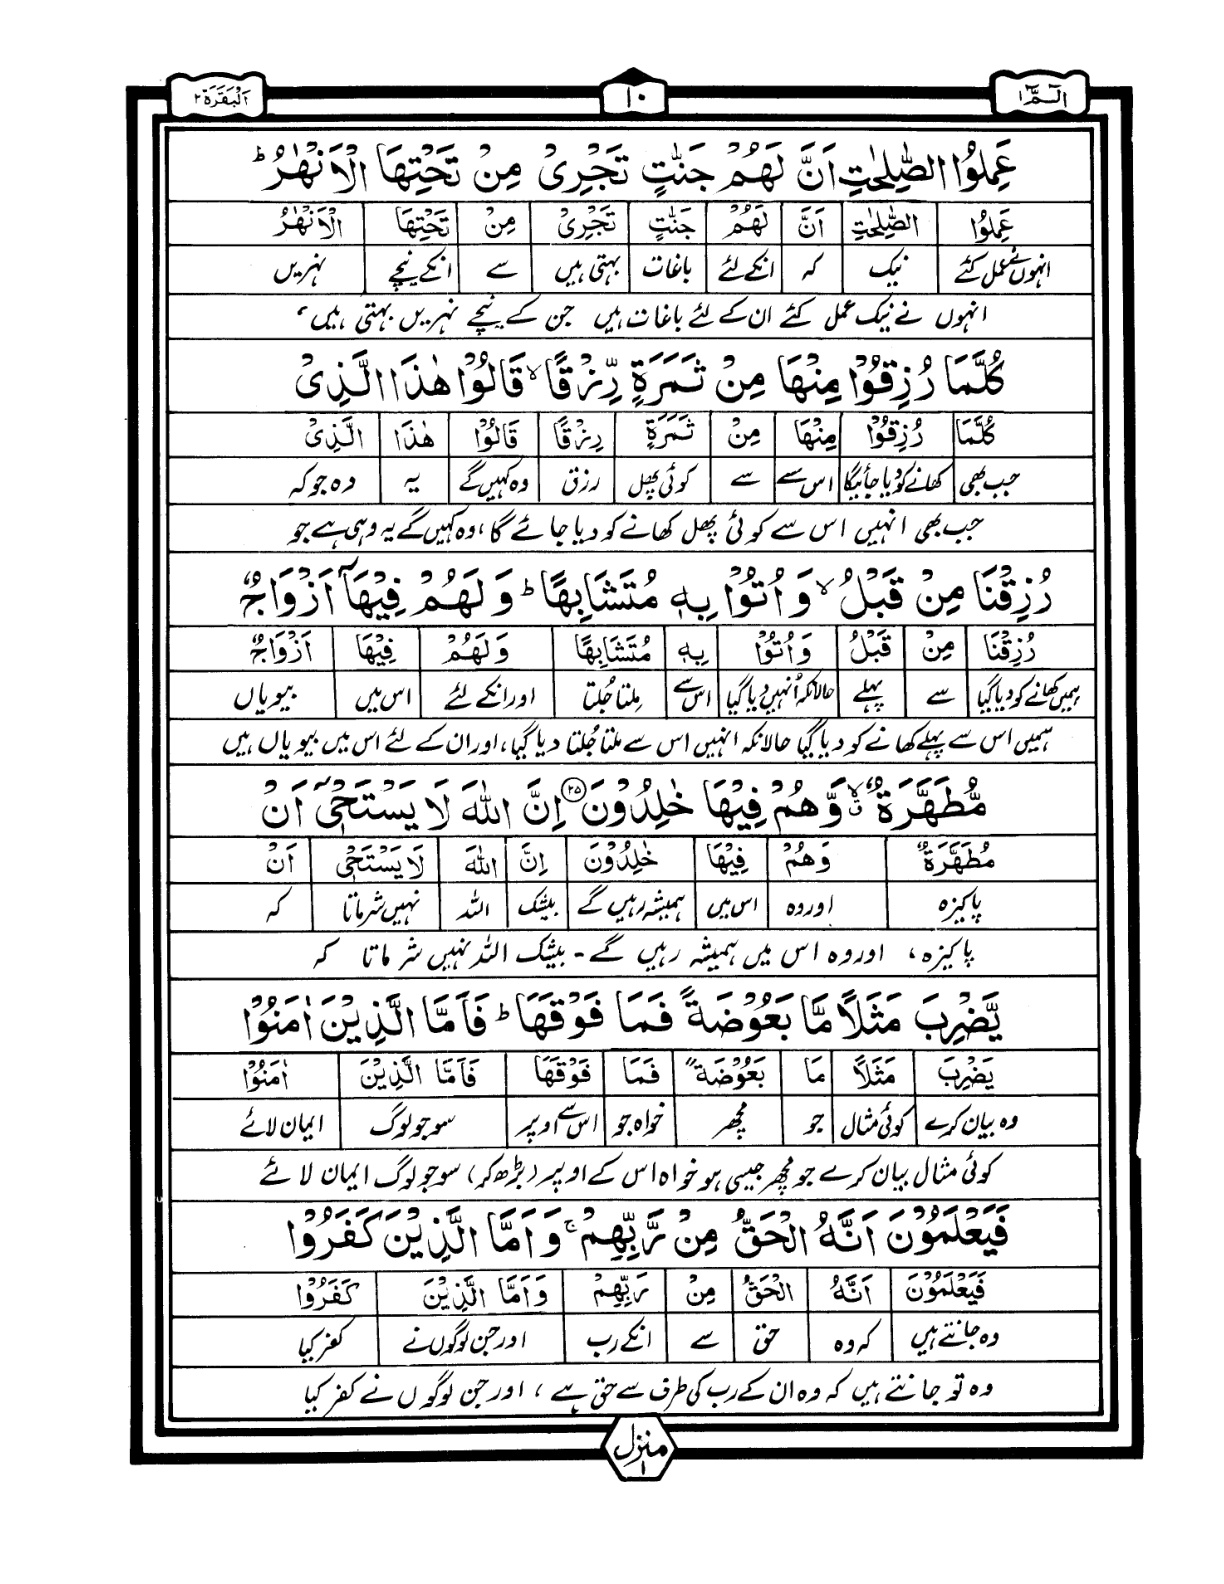 الٓمّٓ ١
١٠
اَلْبَقَرَة ٢
عَمِلُوا الصّٰلِحٰتِ اَنَّ لَهُمْ جَنّٰتٍ تَجْرِىْ مِنْ تَحْتِهَا الْاَنْهٰرُ ؕ
عَمِلُوا الصّٰلِحٰتِ اَنَّ لَهُمْ جَنّٰتٍ تَجْرِىْ مِنْ تَحْتِهَا الْاَنْهٰرُ
انہوں نے عمل کئے نیک کہ انکے لئے باغات بہتی ہیں سے انکے نیچے نہریں
انہوں نے نیک عمل کئے ان کے لئے باغات ہیں جن کے نیچے نہریں بہتی ہیں،
كُلَّمَا رُزِقُوْا مِنْهَا مِنْ ثَمَرَةٍ رِّزْقًا ۙ قَالُوْا هٰذَا الَّذِىْ
كُلَّمَا رُزِقُوْا مِنْهَا مِنْ ثَمَرَةٍ رِزْقًا قَالُوْا هٰذَا الَّذِىْ
جب بھی کھانے کو دیا جائیگا اس سے سے کوئی پھل رزق وہ کہیں گے یہ وہ جو کہ
جب بھی انہیں اس سے کوئی پھل کھانے کو دیا جائے گا، وہ کہیں گے یہ وہی ہے جو
رُزِقْنَا مِنْ قَبْلُ ۙ وَاُتُوْا بِهٖ مُتَشَابِهًا ؕ وَلَهُمْ فِيْهَاۤ اَزْوَاجٌ
رُزِقْنَا مِنْ قَبْلُ وَاُتُوْا بِهٖ مُتَشَابِهًا وَلَهُمْ فِيْهَا اَزْوَاجٌ
ہمیں کھانے کو دیا گیا سے پہلے حالانکہ اُنہیں دیا گیا اس سے مِلتا جُلتا اور انکے لئے اس میں بیویاں
ہمیں اس سے پہلے کھانے کو دیا گیا حالانکہ انہیں اس سے ملتا جُلتا دیا گیا، اور ان کے لئے اس میں بیویاں ہیں
مُّطَهَّرَةٌ ۙ وَّهُمْ فِيْهَا خٰلِدُوْنَ ﴿۲۵﴾ اِنَّ اللّٰهَ لَا يَسْتَحْىٖۤ اَنْ
مُطَهَّرَةٌ وَهُمْ فِيْهَا خٰلِدُوْنَ اِنَّ اللّٰهَ لَا يَسْتَحْىٖ اَنْ
پاکیزہ اور وہ اس میں ہمیشہ رہیں گے بیشک اللہ نہیں شرماتا کہ
پاکیزہ، اور وہ اس میں ہمیشہ رہیں گے۔ بیشک اللہ نہیں شرماتا کہ
يَّضْرِبَ مَثَلًا مَّا بَعُوْضَةً فَمَا فَوْقَهَا ؕ فَاَمَّا الَّذِيْنَ اٰمَنُوْا
يَضْرِبَ مَثَلًا مَا بَعُوْضَةً فَمَا فَوْقَهَا فَاَمَّا الَّذِيْنَ اٰمَنُوْا
وہ بیان کرے کوئی مثال جو مچھر خواہ جو اس سے اوپر سو جو لوگ ایمان لائے
کوئی مثال بیان کرے جو مچھر جیسی ہو خواہ اس کے اوپر (بڑھ کر) سو جو لوگ ایمان لائے
فَيَعْلَمُوْنَ اَنَّهُ الْحَقُّ مِنْ رَّبِّهِمْ ۚ وَاَمَّا الَّذِيْنَ كَفَرُوْا
فَيَعْلَمُوْنَ اَنَّهُ الْحَقُّ مِنْ رَبِّهِمْ وَاَمَّا الَّذِيْنَ كَفَرُوْا
وہ جانتے ہیں کہ وہ حق سے انکے رب اور جن لوگوں نے کفر کیا
وہ تو جانتے ہیں کہ وہ ان کے رب کی طرف سے حق ہے، اور جن لوگوں نے کفر کیا
منزل ۱